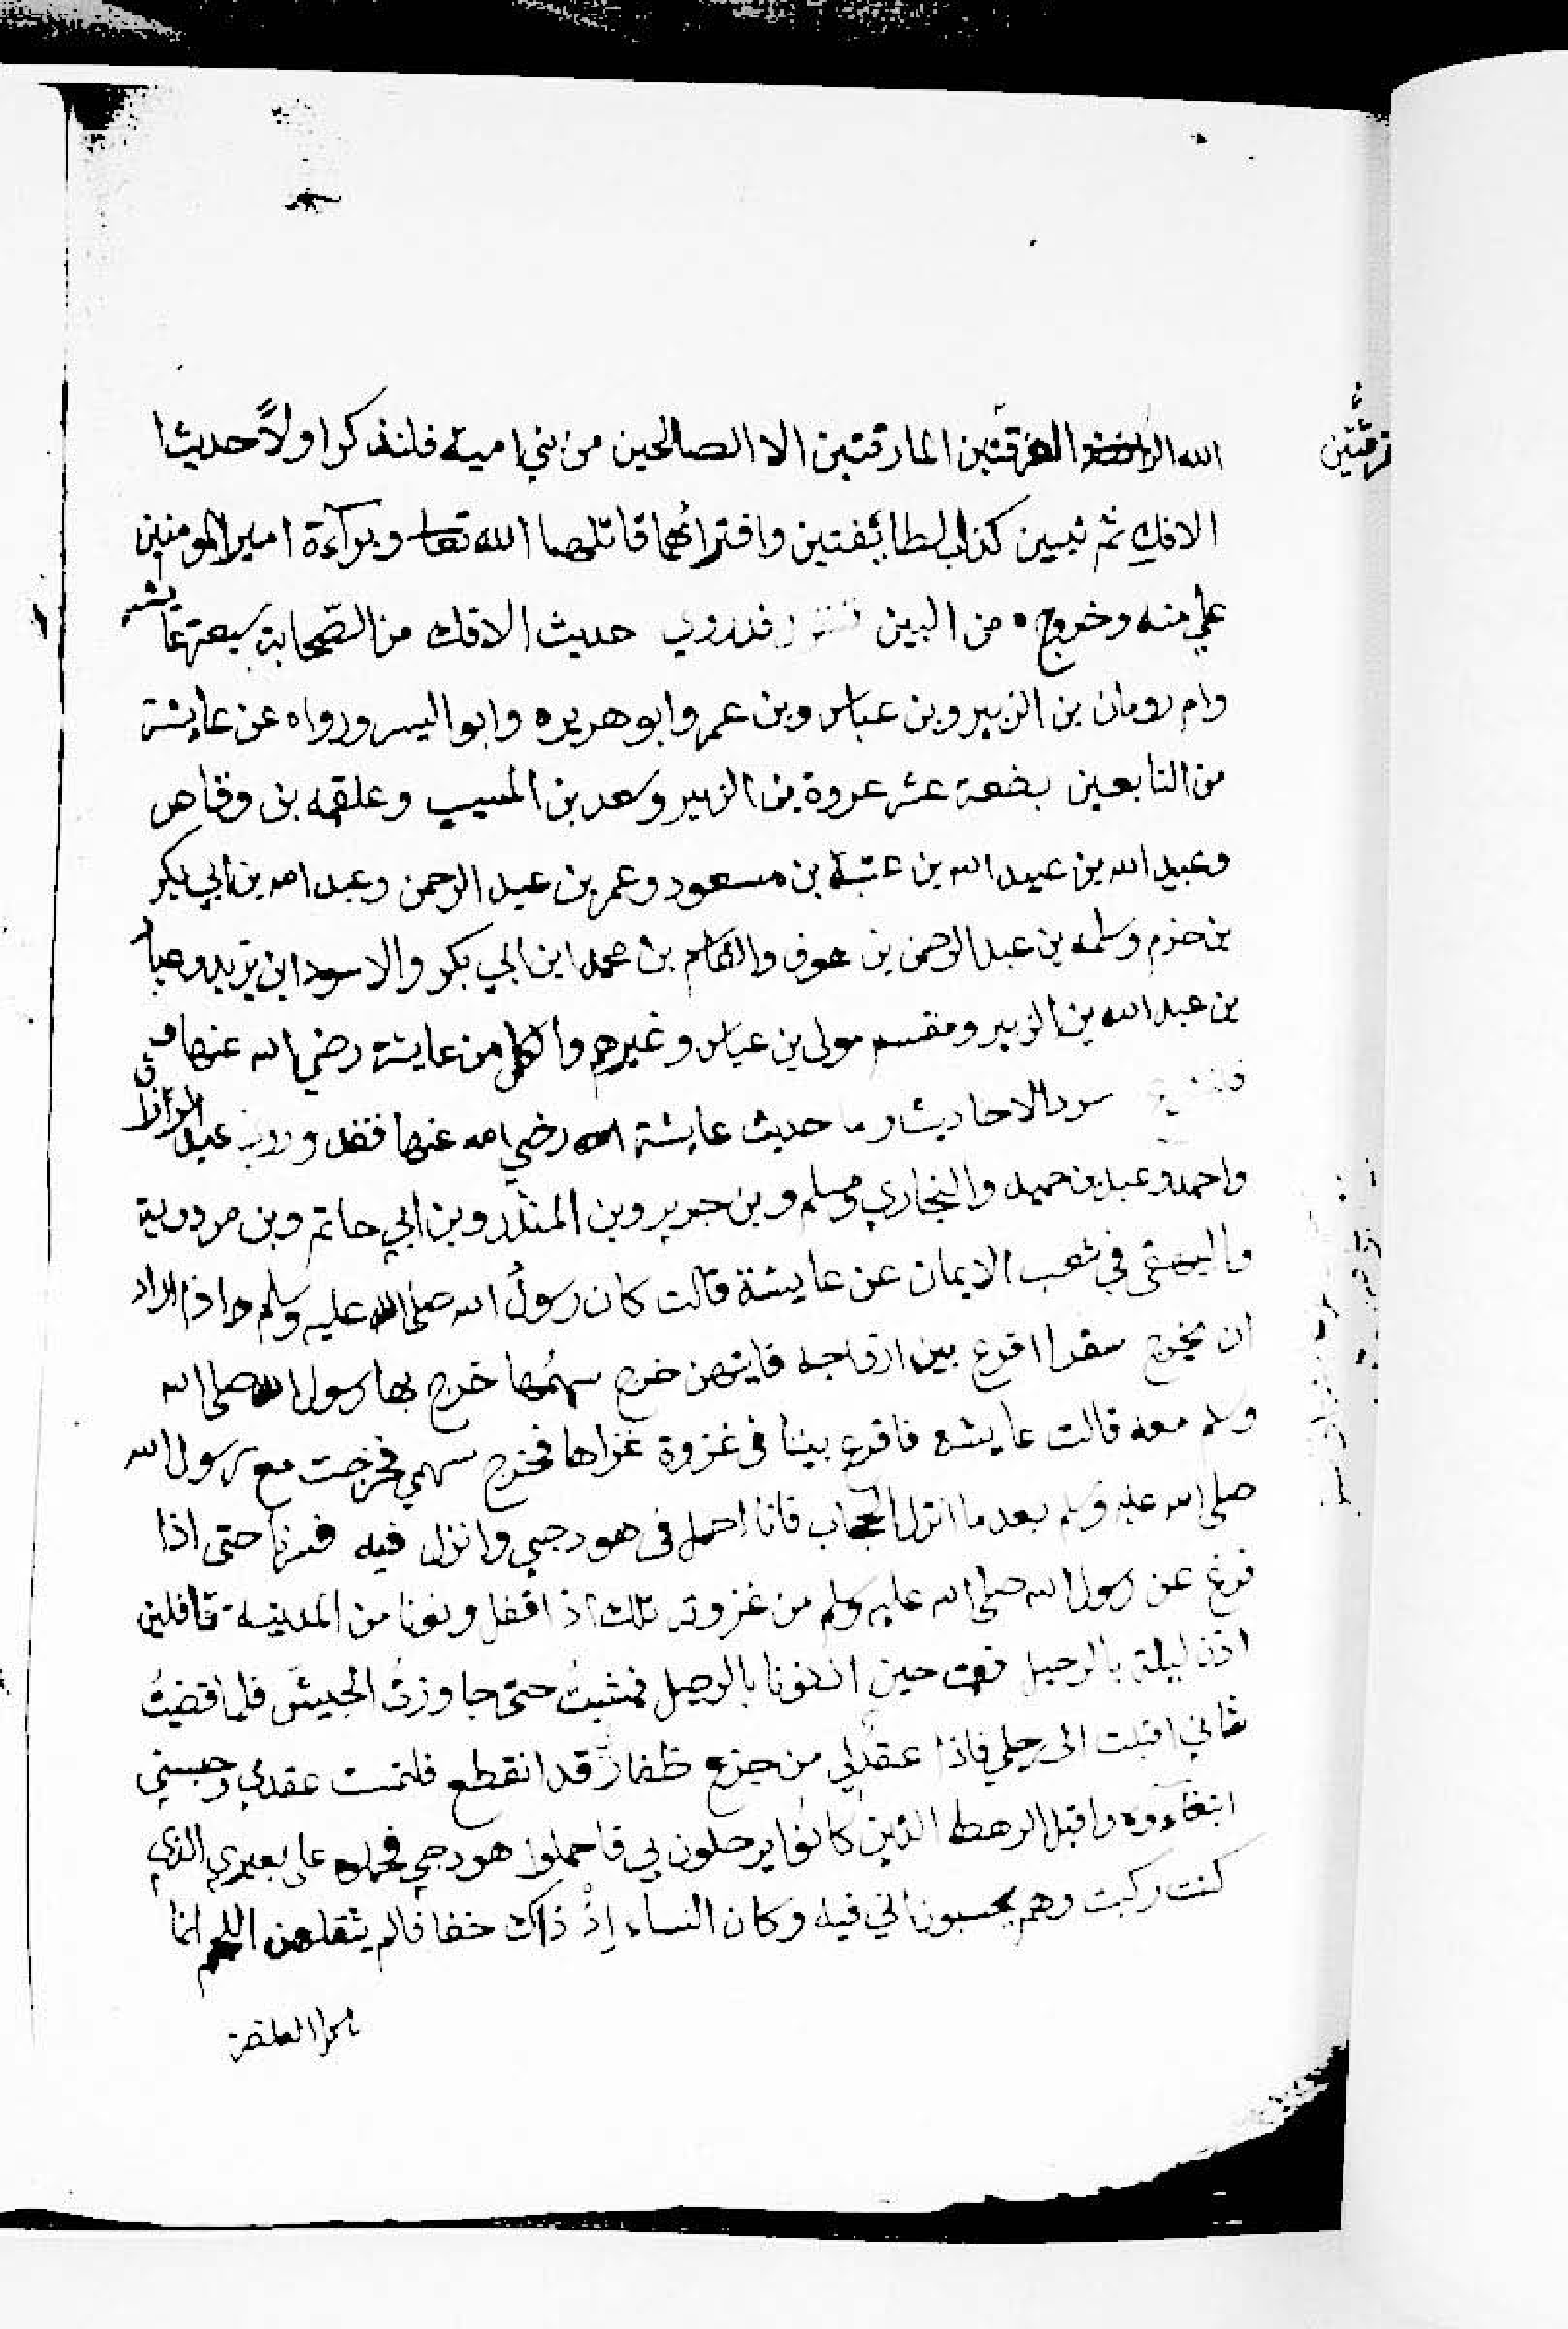 الله الفرقتين المارقتين الا الصالحين من بني امية فلنذكر اولاً حديث ا
الافك ثم نبين كذب الطائفتين وافترائهما قاتلهما الله تعا وبرآءة امير المومنين
علي منه وخروجه من البين حديث الافك من الصّحابة سبعة عايشه
وام رومان بن الزبير وبن عباس وبن عمر وابو هريره وابو اليسر ورواه عن عايشة
من التابعين بضعة عشر عروة بن الزبير وسعد بن المسيب وعلقمه بن وقاص
وعبيد الله بن عبيد الله بن عتبة بن مسعود وعمر بن عبد الرحمن وعبد الله بن ابي بكر
بن حزم وسلمه بن عبد الرحمن بن عوف والقاسم بن محمد ابن ابي بكر والاسود ابن يزيد وعباد
بن عبد الله بن الزبير ومقسم مولى بن عباس وغيرهم والكل من عايشة رضي الله عنها
سرد الاحاديث حديث عايشة رضي الله عنها فقد وروى عبد الرزاق
واحمد وعبد بن حميد والبخاري ومسلم وبن جرير وبن المنذر وبن ابي حاتم وبن مردوية
والبيهقى في شعب الايمان عن عايشة قالت كان رسول الله صلى الله عليه وسلم اذا اراد
ان يخرج سفرا اقرع بين ازواجه فايتهن خرج سهمُها خرج بها رسول الله صلى الله
وسلم معه قالت عايشه فاقرع بيننا فى غزوة غزاها فخرج سهمي فخرجت مع رسول الله
صلى الله عليه وسلم بعد ما انزل الحجاب فانا احمل فى هودجي وانزل فيه فسرنا حتى اذا
فرغ عن رسول الله صلى الله عليه وسلم من غزوته تلك اذ اقفل ودنونا من المدينة قافلين
اذن ليلة بالرحيل فقمت حين اذنونا بالرحيل فمشيتُ حتى جاوزتُ الجيش فلما قضيتُ
شاني اقبلت الى رحلي فاذا عقدٌ لي من جزع ظفار قد انقطع فلتمست عقدي وحبسني
ابتغآءوه واقبل الرهط الذين كانوا يرحلون بي فاحملوا هودجي فحملوه على بعيري الذي
كنت ركبت وهم يحسبون اني فيه وكان النساء إذْ ذاك خفافا لم يثقلهن اللحم انما